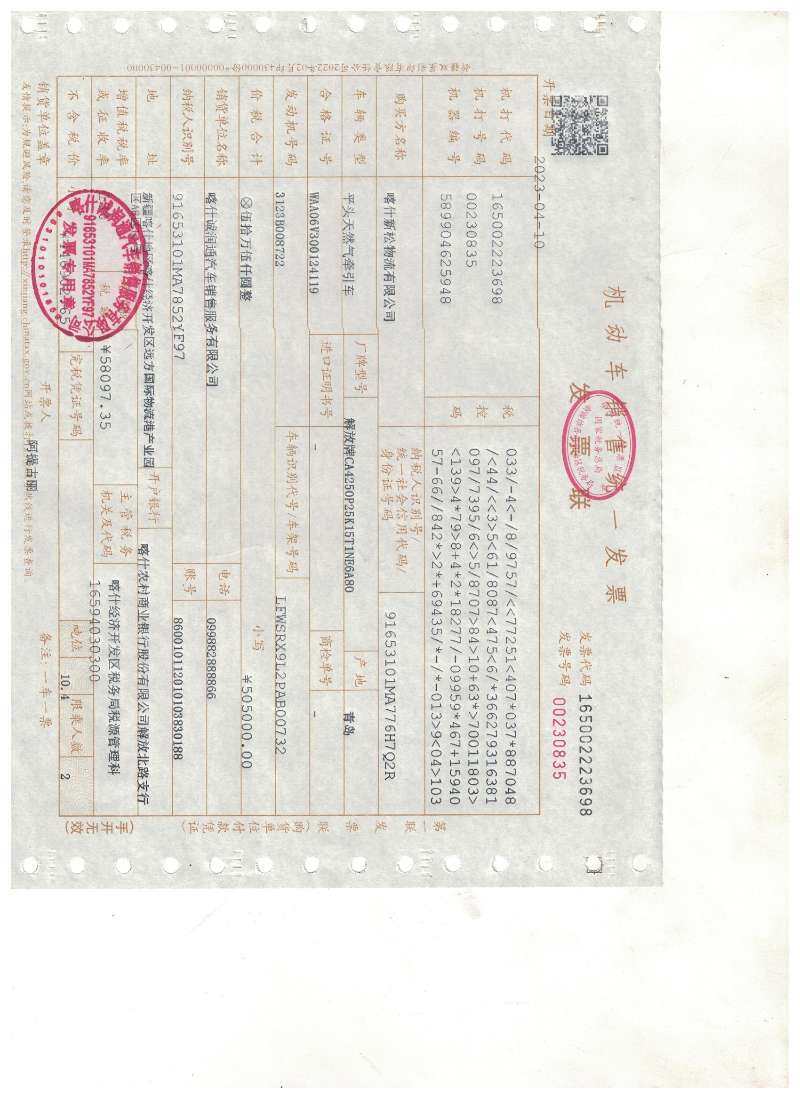 机动车销售统一发票
发票联
发票代码 165002223698
发票号码 00230835
开票日期 2023-04-10
机打代码 165002223698
机打号码 00230835
机器编号 589904625948
税控码
033/-4<-/8/9757/<<77251<407*037*887048
/<44/<<3>5<61/8087<475<6/*366279316381
097/7395/6<>5/8707>84>10+63*>70011803>
<139>4*79>8+4*2*18277/-09959*467+15940
57-66//842*>2*+69435/*-/*-013>9<04>103
购买方名称 喀什新松物流有限公司
纳税人识别号/统一社会信用代码/身份证号码 91653101MA776H7Q2R
车辆类型 平头天然气牵引车
厂牌型号 解放牌CA4250P25K15T1NE6A80
产地 青岛
合格证号 WAA06V300124119
进口证明书号 -
商检单号 -
发动机号码 3123B008722
车辆识别代号/车架号码 LFWSRX9L2PAB00732
价税合计 ⊗伍拾万伍仟圆整
小写 ¥505000.00
销货单位名称 喀什诚润通汽车销售服务有限公司
电话 099882888866
纳税人识别号 91653101MA7852YF97
账号 860010112010103830188
地址 新疆喀什地区喀什经济开发区远方国际物流港产业园
开户银行 喀什农村商业银行股份有限公司解放北路支行
增值税税率或征收率
¥58097.35
主管税务机关及代码 喀什经济开发区税务局税源管理科
16594030300
不含税价
完税凭证号码
吨位 10.4
限乘人数 2
销货单位盖章
开票人 阿提古丽
备注:一车一票
第一联 发票联(购货单位付款凭证)
(手开无效)
91653101MA7852YF97
发票专用章
国家税务总局